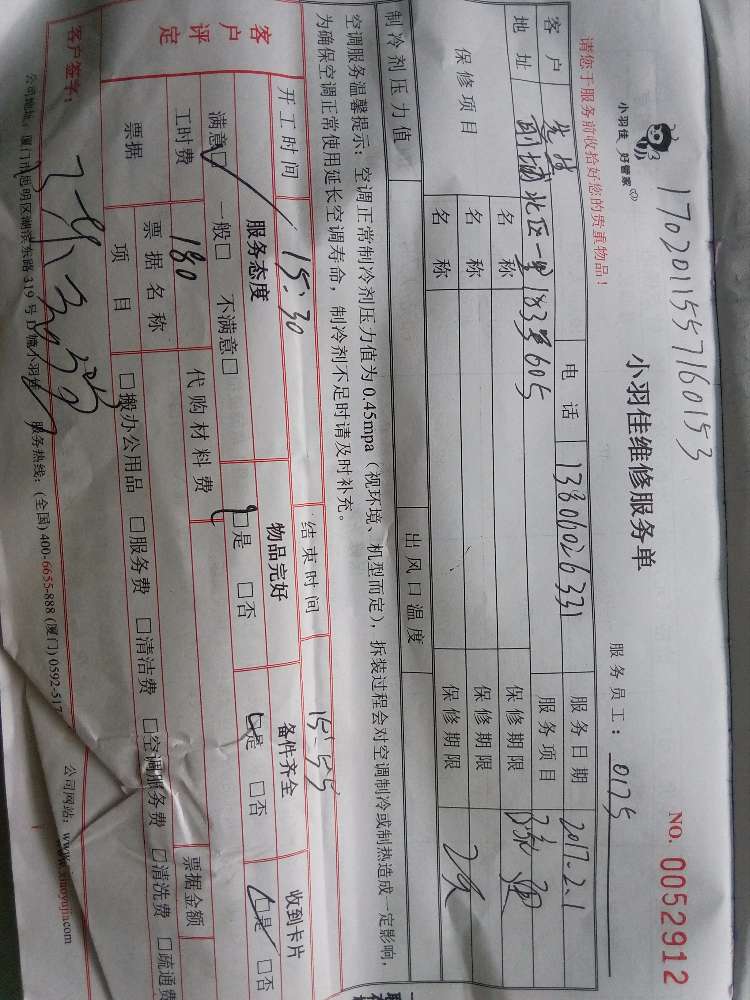 1702011557160153
小羽佳 好管家
小羽佳维修服务单
NO. 0052912
服务员工: 0175
请您于服务前收拾好您的贵重物品!
客户 电话 服务日期 2017.2.1
地址 北区一里183号605 13806026331 服务项目
保修项目 名称 保修期限
名称 保修期限
名称 保修期限
制冷剂压力值 出风口温度
空调服务温馨提示: 空调正常制冷剂压力值为0.45mpa (视环境、机型而定), 拆装过程会对空调制冷或制热造成一定影响,
为确保空调正常使用延长空调寿命, 制冷剂不足时请及时补充。
开工时间 15:30 结束时间 15:55
客户评定 服务态度 物品完好 备件齐全 收到卡片
满意□ 一般□ 不满意□ □是 □否 □是 □否 □是 □否
工时费 180 代购材料费
票据 票据名称 票据金额
项目 □搬办公用品 □服务费 □清洁费 □空调服务费 □清洗费 □疏通费
客户签字:
公司地址: 厦门市思明区湖滨东路319号 服务热线: (全国) 400-6655-888 (厦门) 0592-517 公司网站: www.xiaoyujia.com